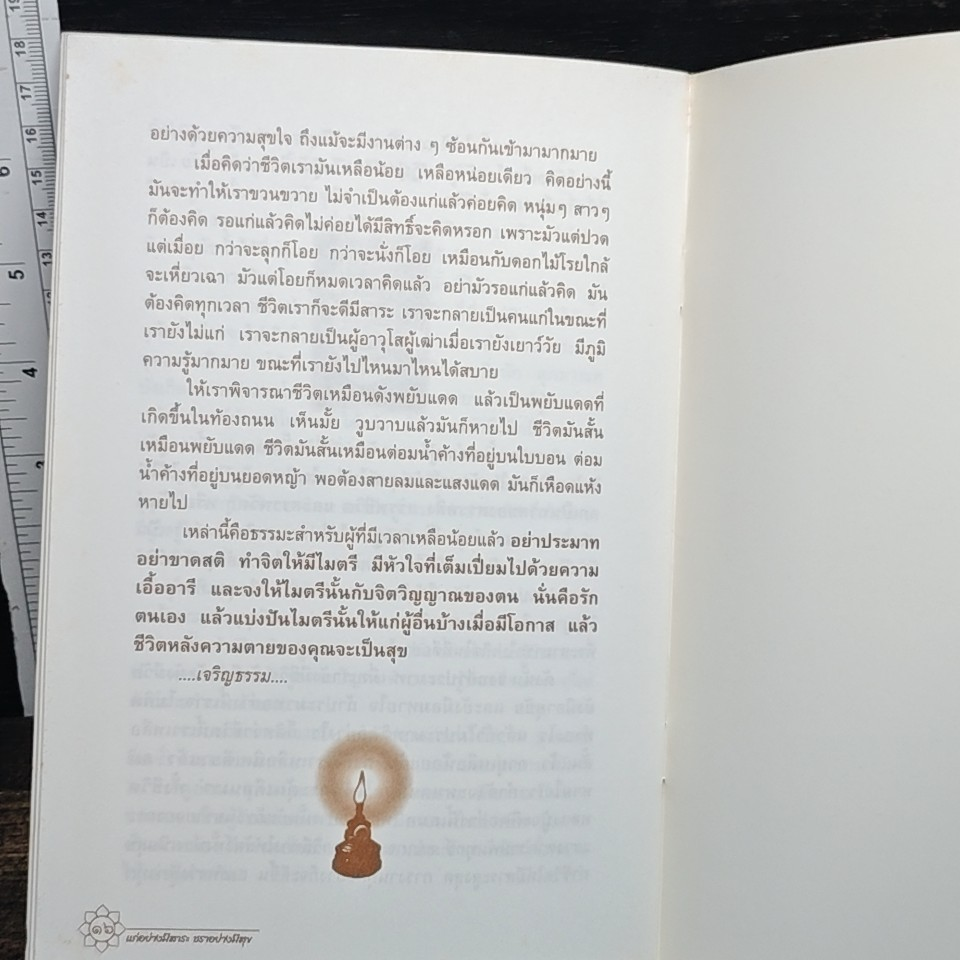 อย่างด้วยความสุขใจ ถึงแม้จะมีงานต่าง ๆ ซ้อนกันเข้ามามากมาย
เมื่อคิดว่าชีวิตเรามันเหลือน้อย เหลือหน่อยเดียว คิดอย่างนี้
มันจะทำให้เราขวนขวาย ไม่จำเป็นต้องแก่แล้วค่อยคิด หนุ่มๆ สาวๆ
ก็ต้องคิด รอแก่แล้วคิดไม่ค่อยได้มีสิทธิ์จะคิดหรอก เพราะมัวแต่ปวด
แต่เมื่อย กว่าจะลุกก็โอย กว่าจะนั่งก็โอย เหมือนกับดอกไม้โรยใกล้
จะเหี่ยวเฉา มัวแต่โอยก็หมดเวลาคิดแล้ว อย่ามัวรอแก่แล้วคิด มัน
ต้องคิดทุกเวลา ชีวิตเราก็จะดีมีสาระ เราจะกลายเป็นคนแก่ในขณะที่
เรายังไม่แก่ เราจะกลายเป็นผู้อาวุโสผู้เฒ่าเมื่อเรายังเยาว์วัย มีภูมิ
ความรู้มากมาย ขณะที่เรายังไปไหนมาไหนได้สบาย
ให้เราพิจารณาชีวิตเหมือนดังพยับแดด แล้วเป็นพยับแดดที่
เกิดขึ้นในท้องถนน เห็นมั้ย วูบวาบแล้วมันก็หายไป ชีวิตมันสั้น
เหมือนพยับแดด ชีวิตมันสั้นเหมือนต่อมน้ำค้างที่อยู่บนใบบอน ต่อม
น้ำค้างที่อยู่บนยอดหญ้า พอต้องสายลมและแสงแดด มันก็เหือดแห้ง
หายไป
เหล่านี้คือธรรมะสำหรับผู้ที่มีเวลาเหลือน้อยแล้ว อย่าประมาท
อย่าขาดสติ ทำจิตให้มีไมตรี มีหัวใจที่เต็มเปี่ยมไปด้วยความ
เอื้ออารี และจงให้ไมตรีนั้นกับจิตวิญญาณของตน นั่นคือรัก
ตนเอง แล้วแบ่งปันไมตรีนั้นให้แก่ผู้อื่นบ้างเมื่อมีโอกาส แล้ว
ชีวิตหลังความตายของคุณจะเป็นสุข
....เจริญธรรม....
๑๖ แก่อย่างมีสาระ ชราอย่างมีสุข
19
18
17
16
15
14
13
6
5
4